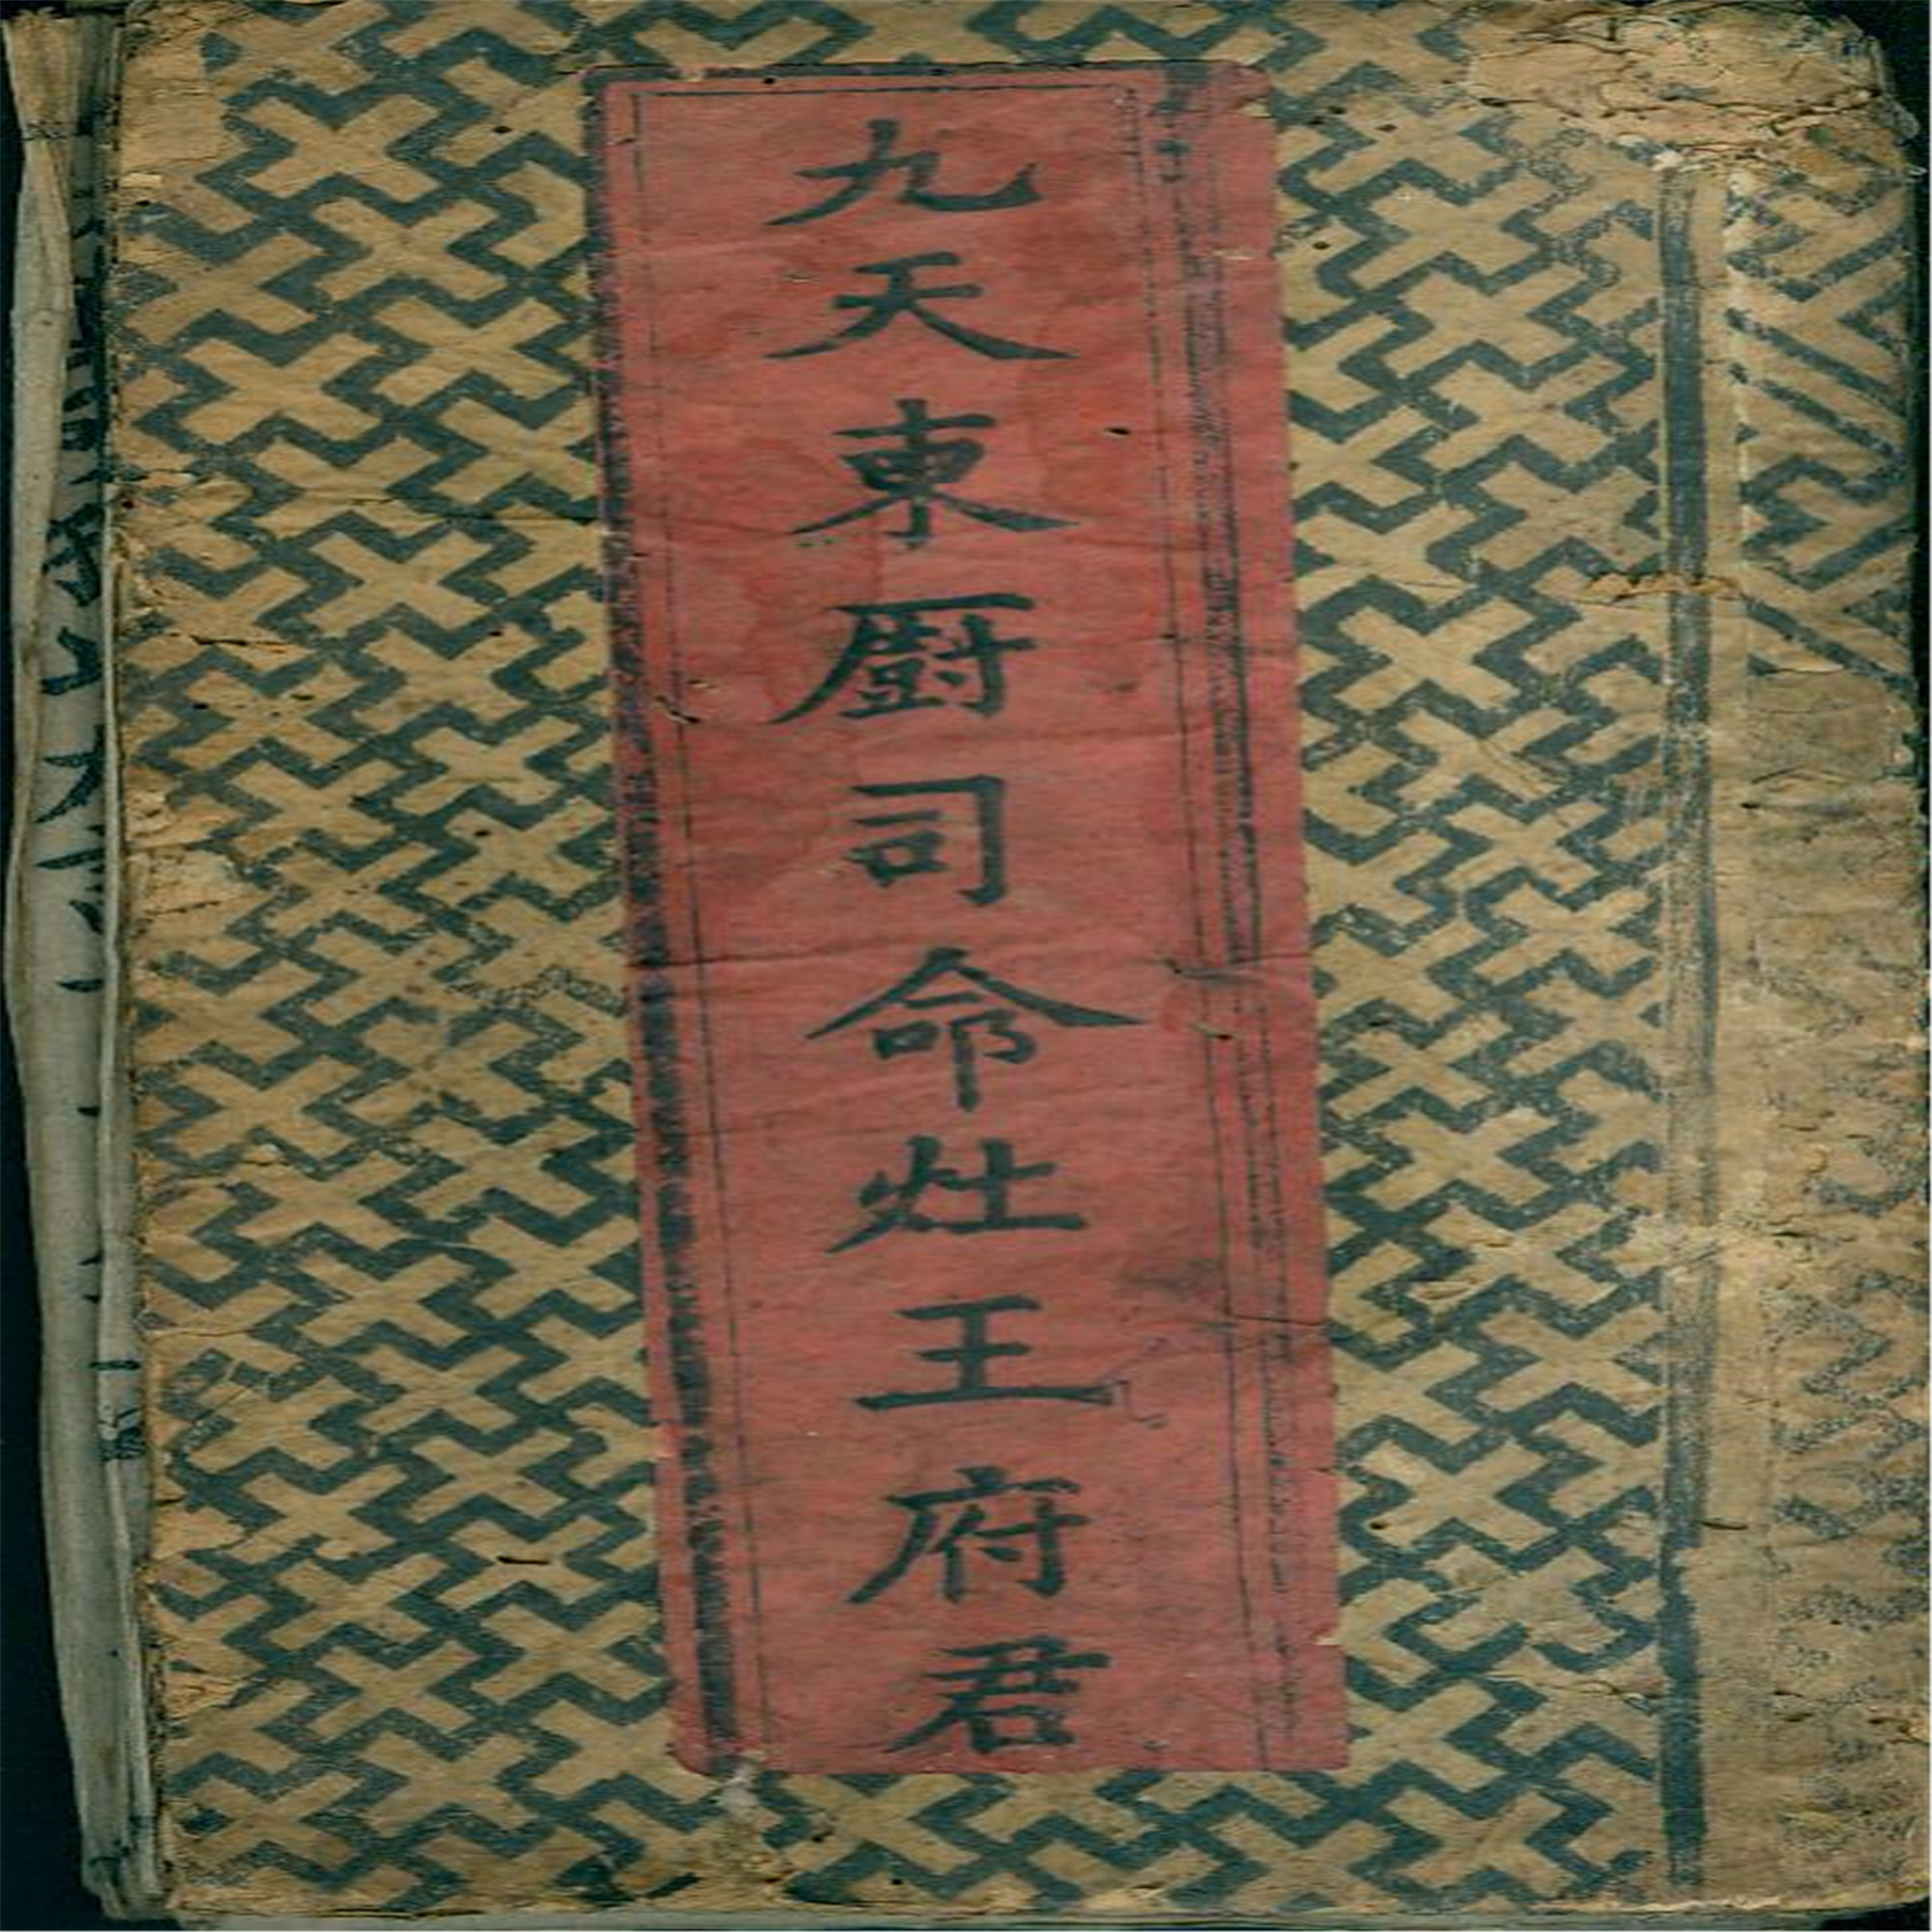 九天東厨司命灶王府君